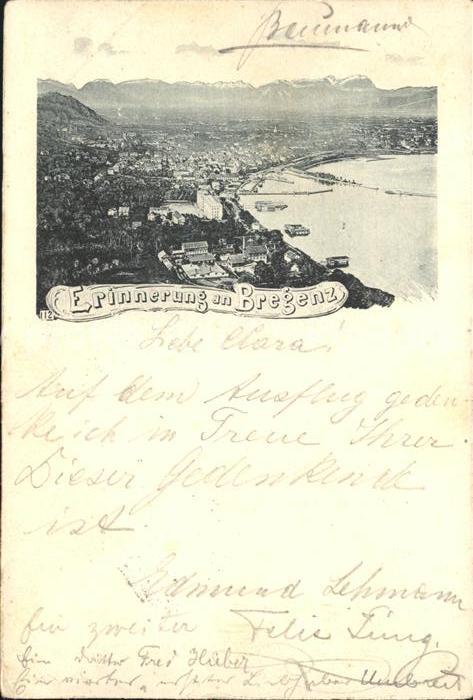 Baumann
112
Erinnerung an Bregenz
Liebe Clara!
Auf dem Ausflug geden-
ke ich in Treue Ihrer.
Dieser Gedenkende
ist
Edmund Lehmann
Ein zweiter Felix Jung.
Ein dritter Fred Huber
Ein vierter